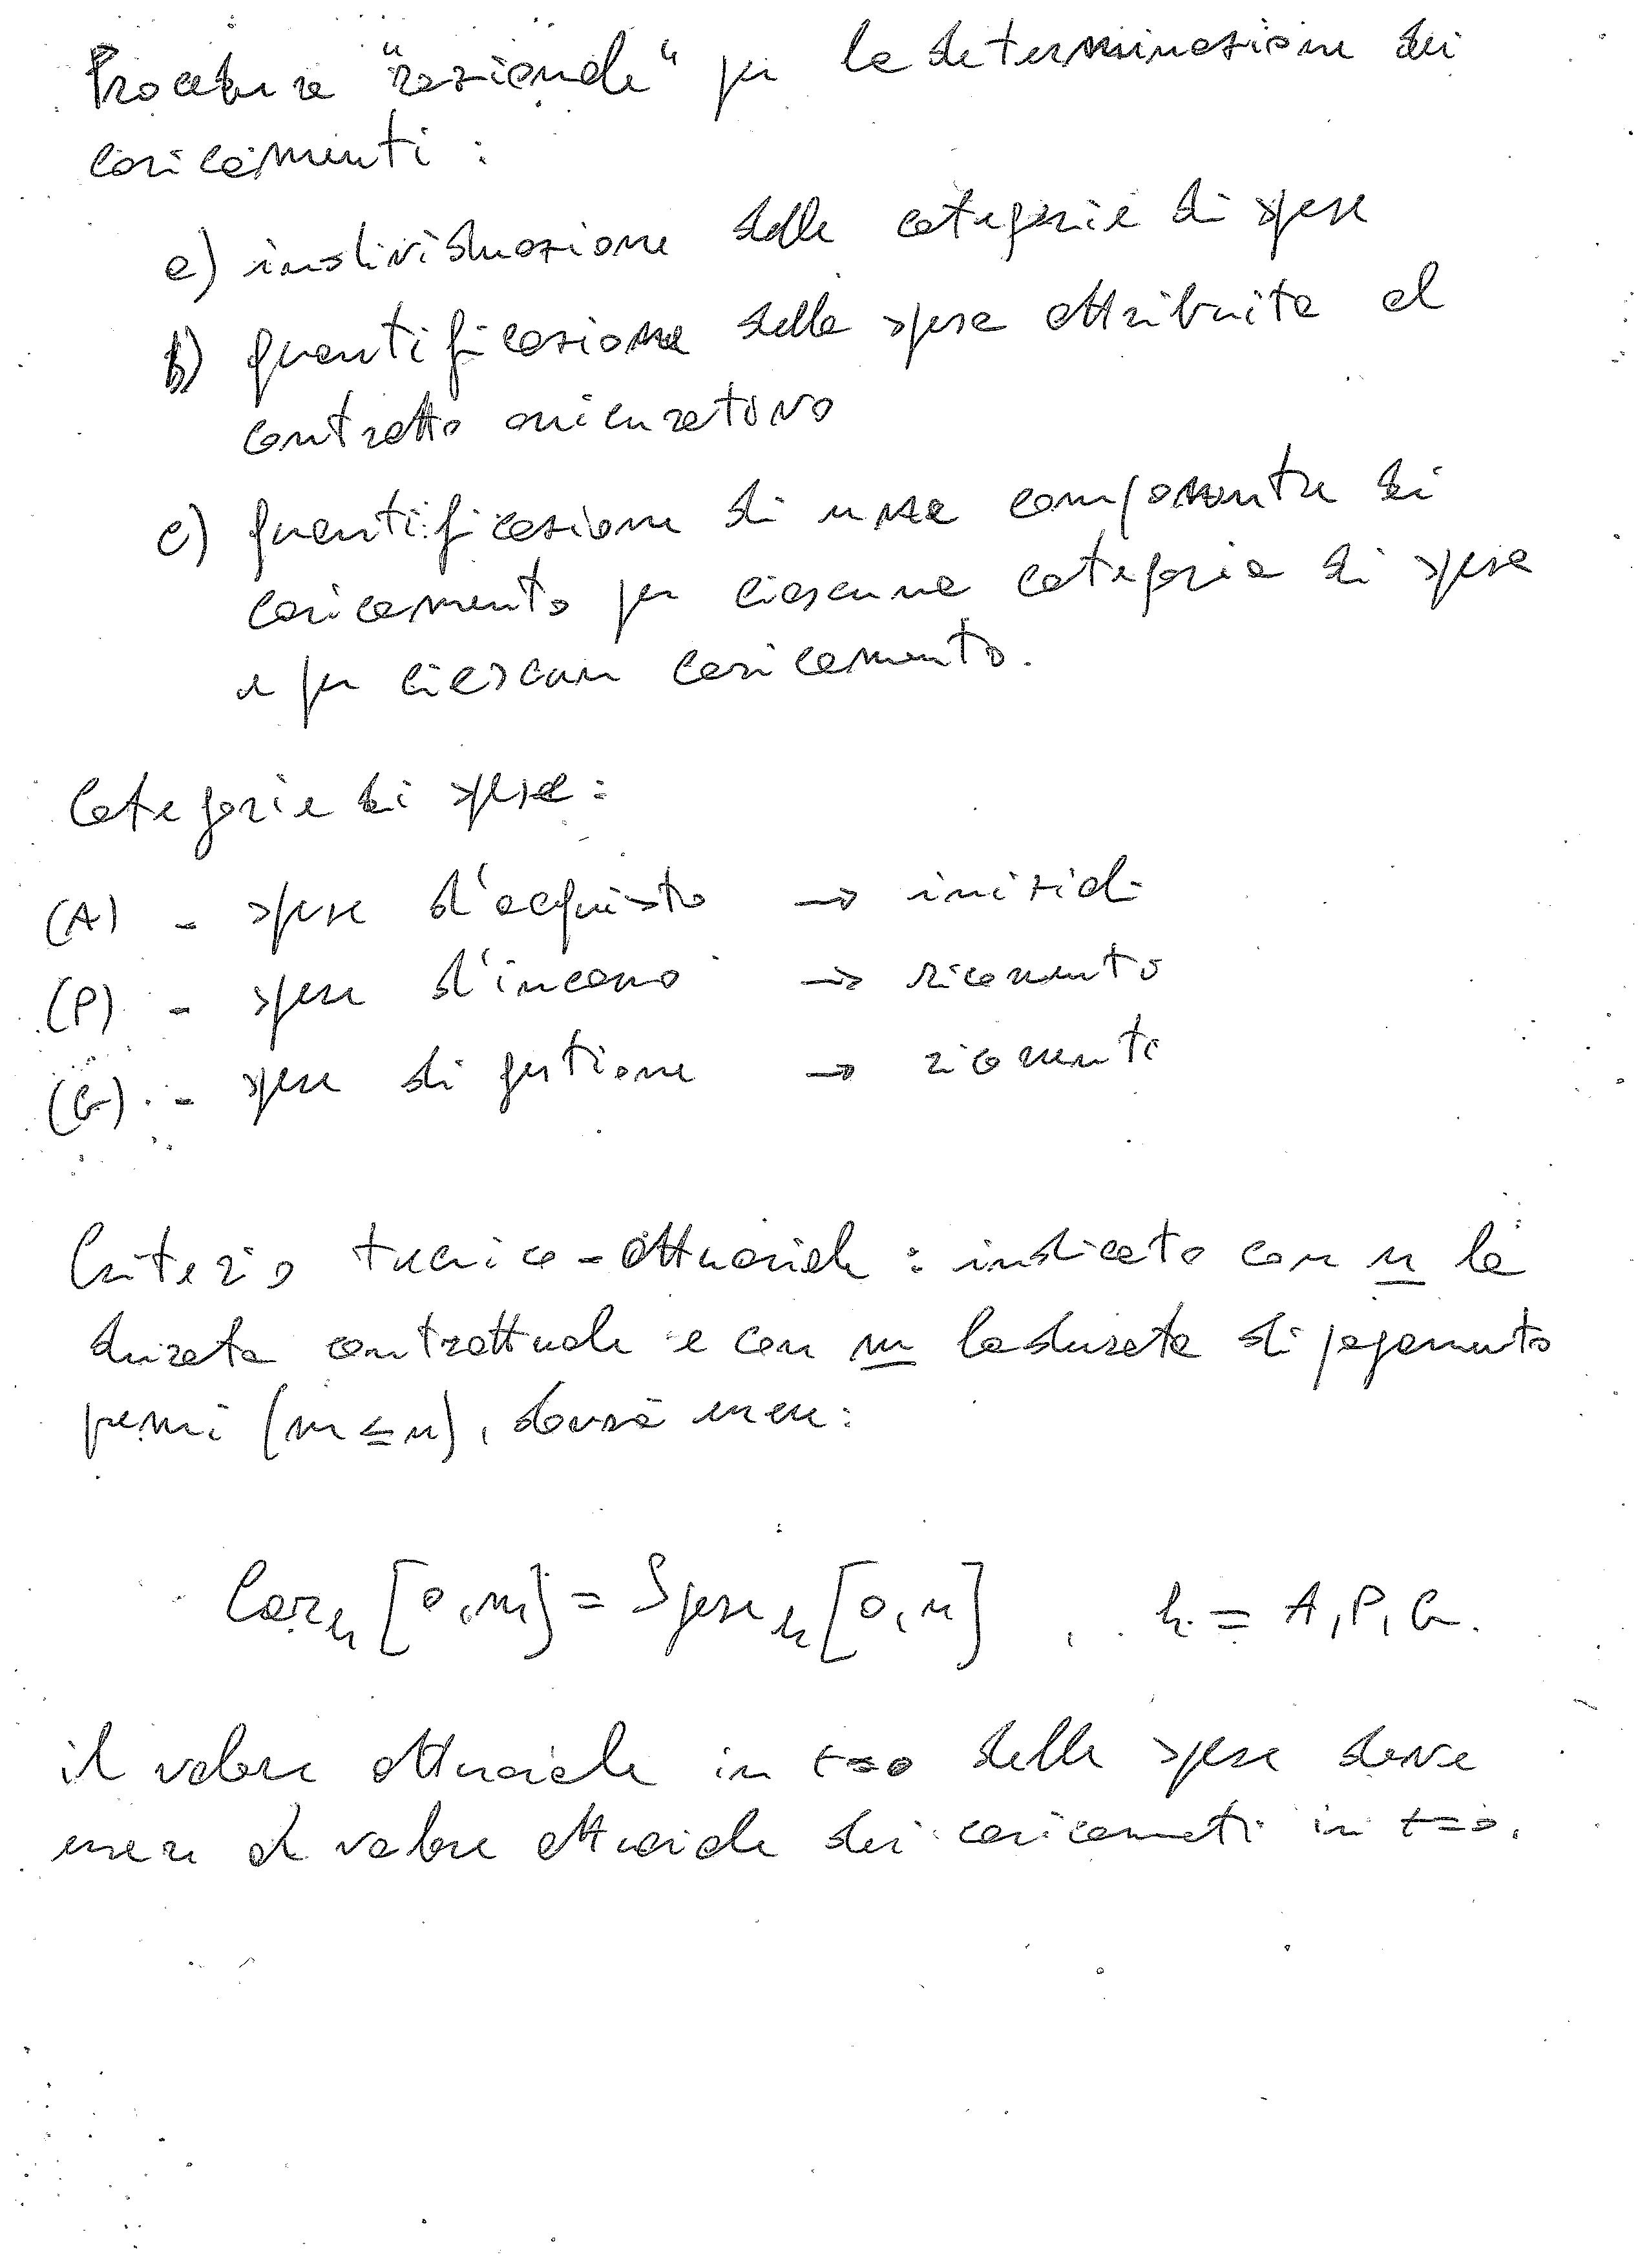 Procedura "razionale" per la determinazione dei
caricamenti :
a) individuazione delle categorie di spese
b) quantificazione delle spese attribuite al
contratto assicurativo
c) quantificazione di una componente di
caricamento per ciascuna categoria di spesa
e per ciascun caricamento.
Categorie di spesa :
(A) - spese d'acquisto → iniziali
(P) - spese d'incasso → ricorrenti
(G) - spese di gestione → ricorrenti
Criterio tecnico-attuariale : indicata con n la
durata contrattuale e con m la durata di pagamento
premi (m ≤ n), dovrà essere :
Car_h [0,m] = Spese_h [0,n] , h = A, P, G.
il valore attuariale in t=0 delle spese deve
essere al valore attuariale dei caricameti in t=0.